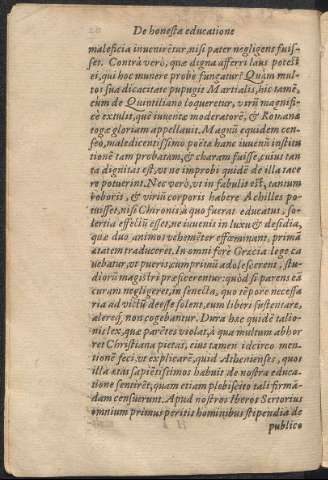 De honesta educatione
maleficia inuenirētur, nisi pater negligens fuis-
set. Contrà verò, quæ digna afferri laus potest
ei, qui hoc munere probè fungatur? Quàm mul-
tos sua dicacitate pupugit Martialis, hic tamē,
cum de Quintiliano loqueretur, virū magnifi-
cè extulit, quē iuuentæ moderatorē, & Romanæ
togæ gloriam appellauit. Magnū equidem cen-
seo, maledicentissimo poëtæ hanc iuuenū institu
tionē tam probatam, & charam fuisse, cuius tan
ta dignitas est, vt ne improbi quidē de illa tace
re potuerint. Nec verò, vt in fabulis est, tantum
roboris, & viriū corporis habere Achilles po-
tuisset, nisi Chironis à quo fuerat educatus, so-
lertia effectū esset, ne iuuenis in luxu & desidia,
quæ duo animos vehemēter effœminant, primā
ætatem traduceret. In omni ferè Græcia lege ca
uebatur, vt pueris, cum primū adolescerent, stu-
diorū magistri præficerentur: quòd si parens eā
curam negligeret, in senecta, quo tēpore necessa
ria ad victū deesse solent, eum liberi sustentare,
alereq́; non cogebantur. Dura hæc quidē talio-
nis lex, quæ parētes violat, à qua multum abhor
ret Christiana pietas, eius tamen idcirco men-
tionē feci: vt explicarē, quid Athenienses, quos
illa ætas sapiētissimos habuit de nostra educa-
tione sentirēt, quam etiam plebiscito tali firmā-
dam censuerunt. Apud nostros Iberos Sertorius
omnium primus peritis hominibus stipendia de
publico